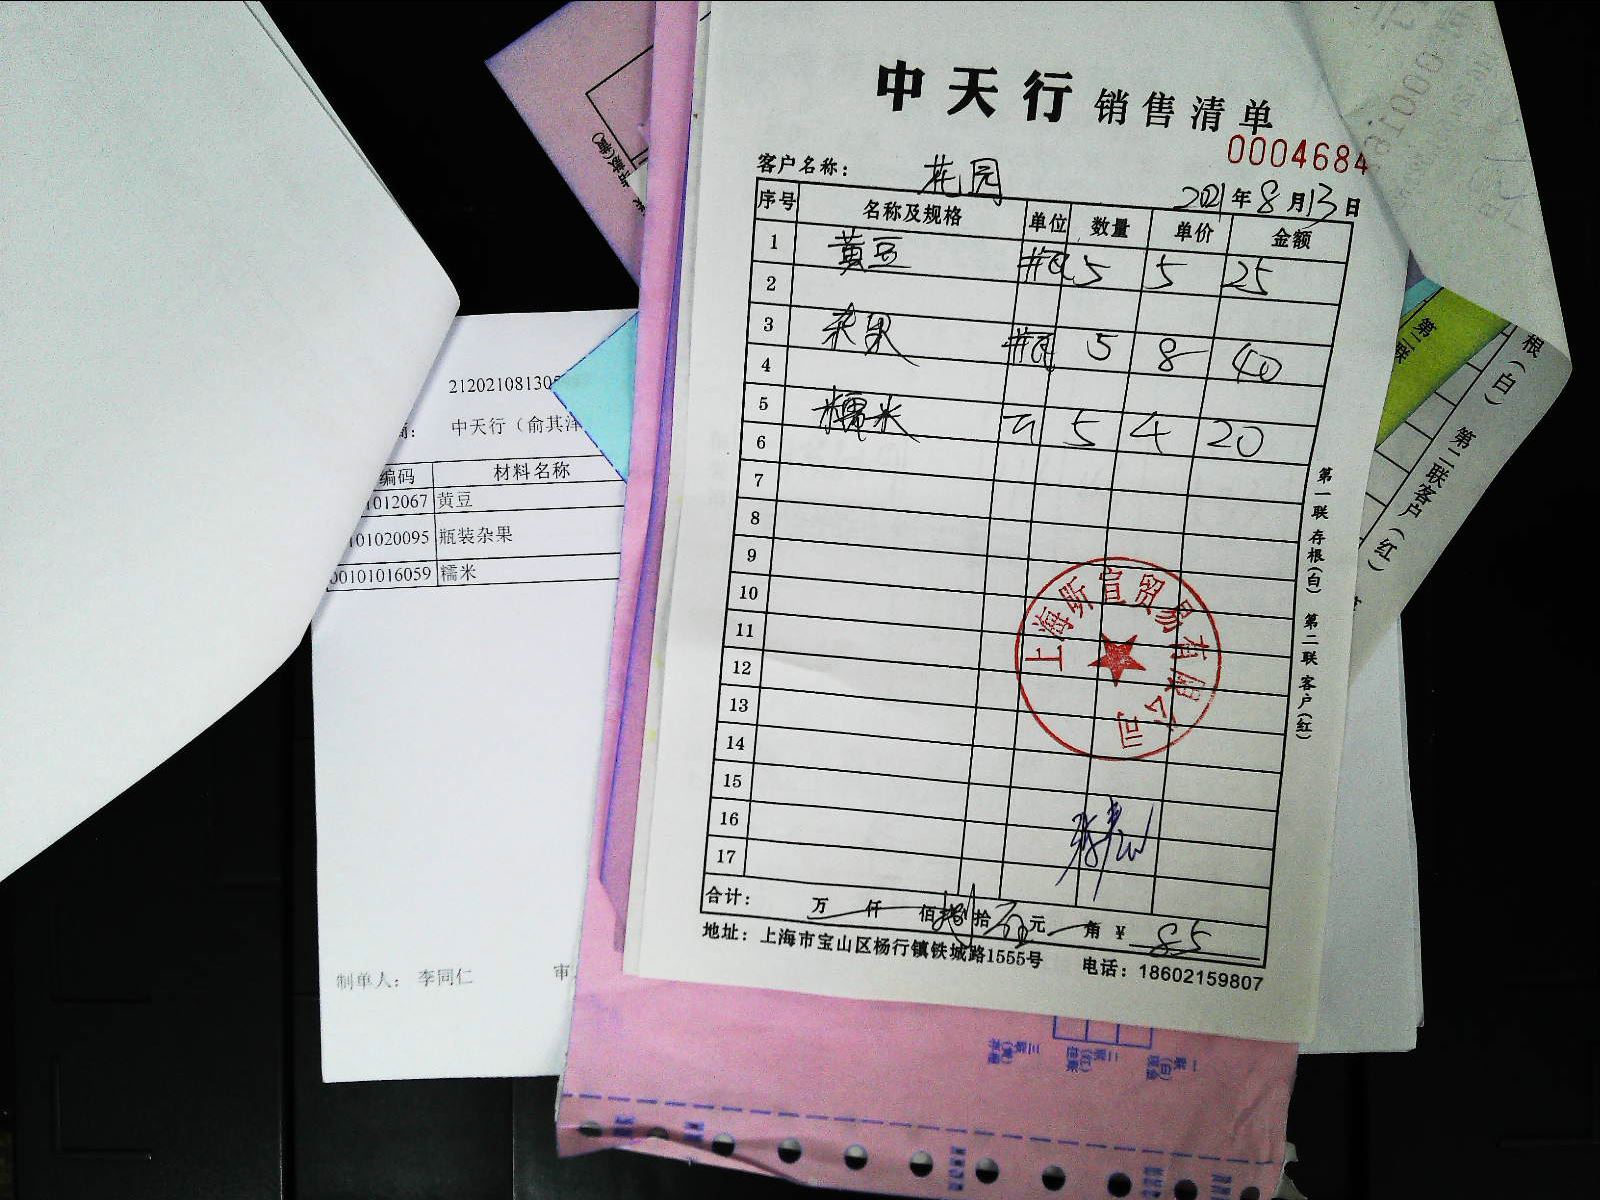 中天行 销售清单
0004684
客户名称： 花园
2021年8月13日
序号 名称及规格 单位 数量 单价 金额
1 黄豆 瓶 5 5 25
2
3 杂果 瓶 5 8 40
4
5 糯米 5 4 20
6
7
8
9
10
11
12
13
14
15
16
17
合计： 万 仟 佰 捌 拾 伍 元 角 ￥ 85
地址：上海市宝山区杨行镇铁城路1555号 电话：18602159807
第一联 存根(白) 第二联 客户(红)
上海昕宣贸易有限公司
21202108130
中天行（俞其洋
编码 材料名称
1012067 黄豆
101020095 瓶装杂果
00101016059 糯米
制单人： 李同仁 审
根（白） 第二联客户（红）
第二联